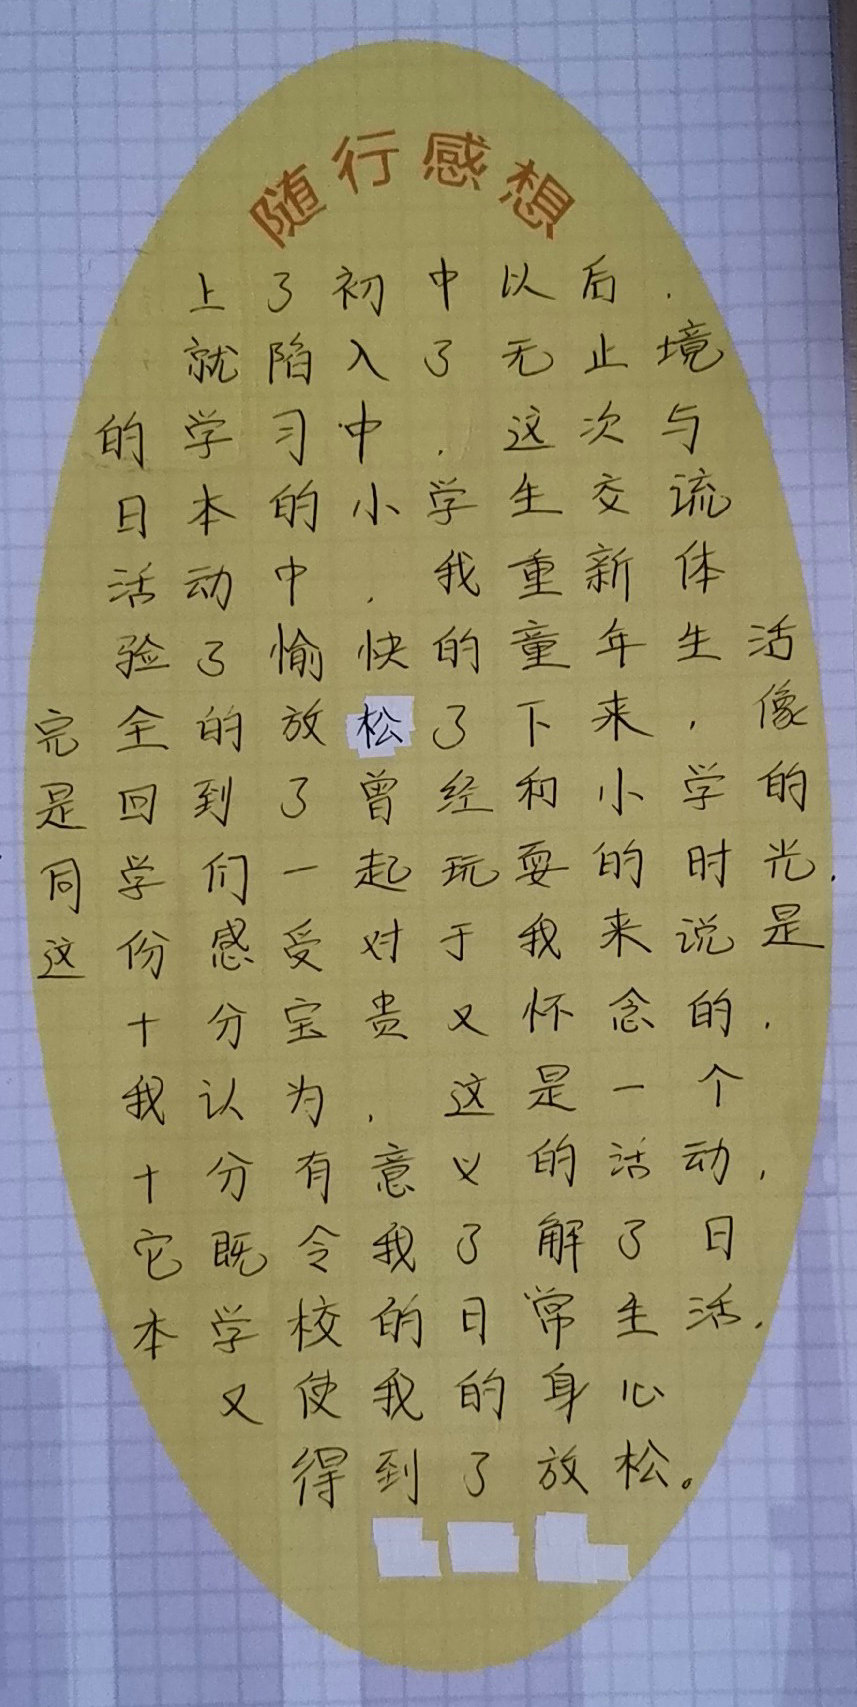 随行感想
上了初中以后，
就陷入了无止境
的学习中，这次与
日本的小学生交流
活动中，我重新体
验了愉快的童年生活
完全的放松了下来，像
是回到了曾经和小学的
同学们一起玩耍的时光，
这份感受对于我来说是
十分宝贵又怀念的，
我认为，这是一个
十分有意义的活动，
它既令我了解了日
本学校的日常生活，
又使我的身心
得到了放松。